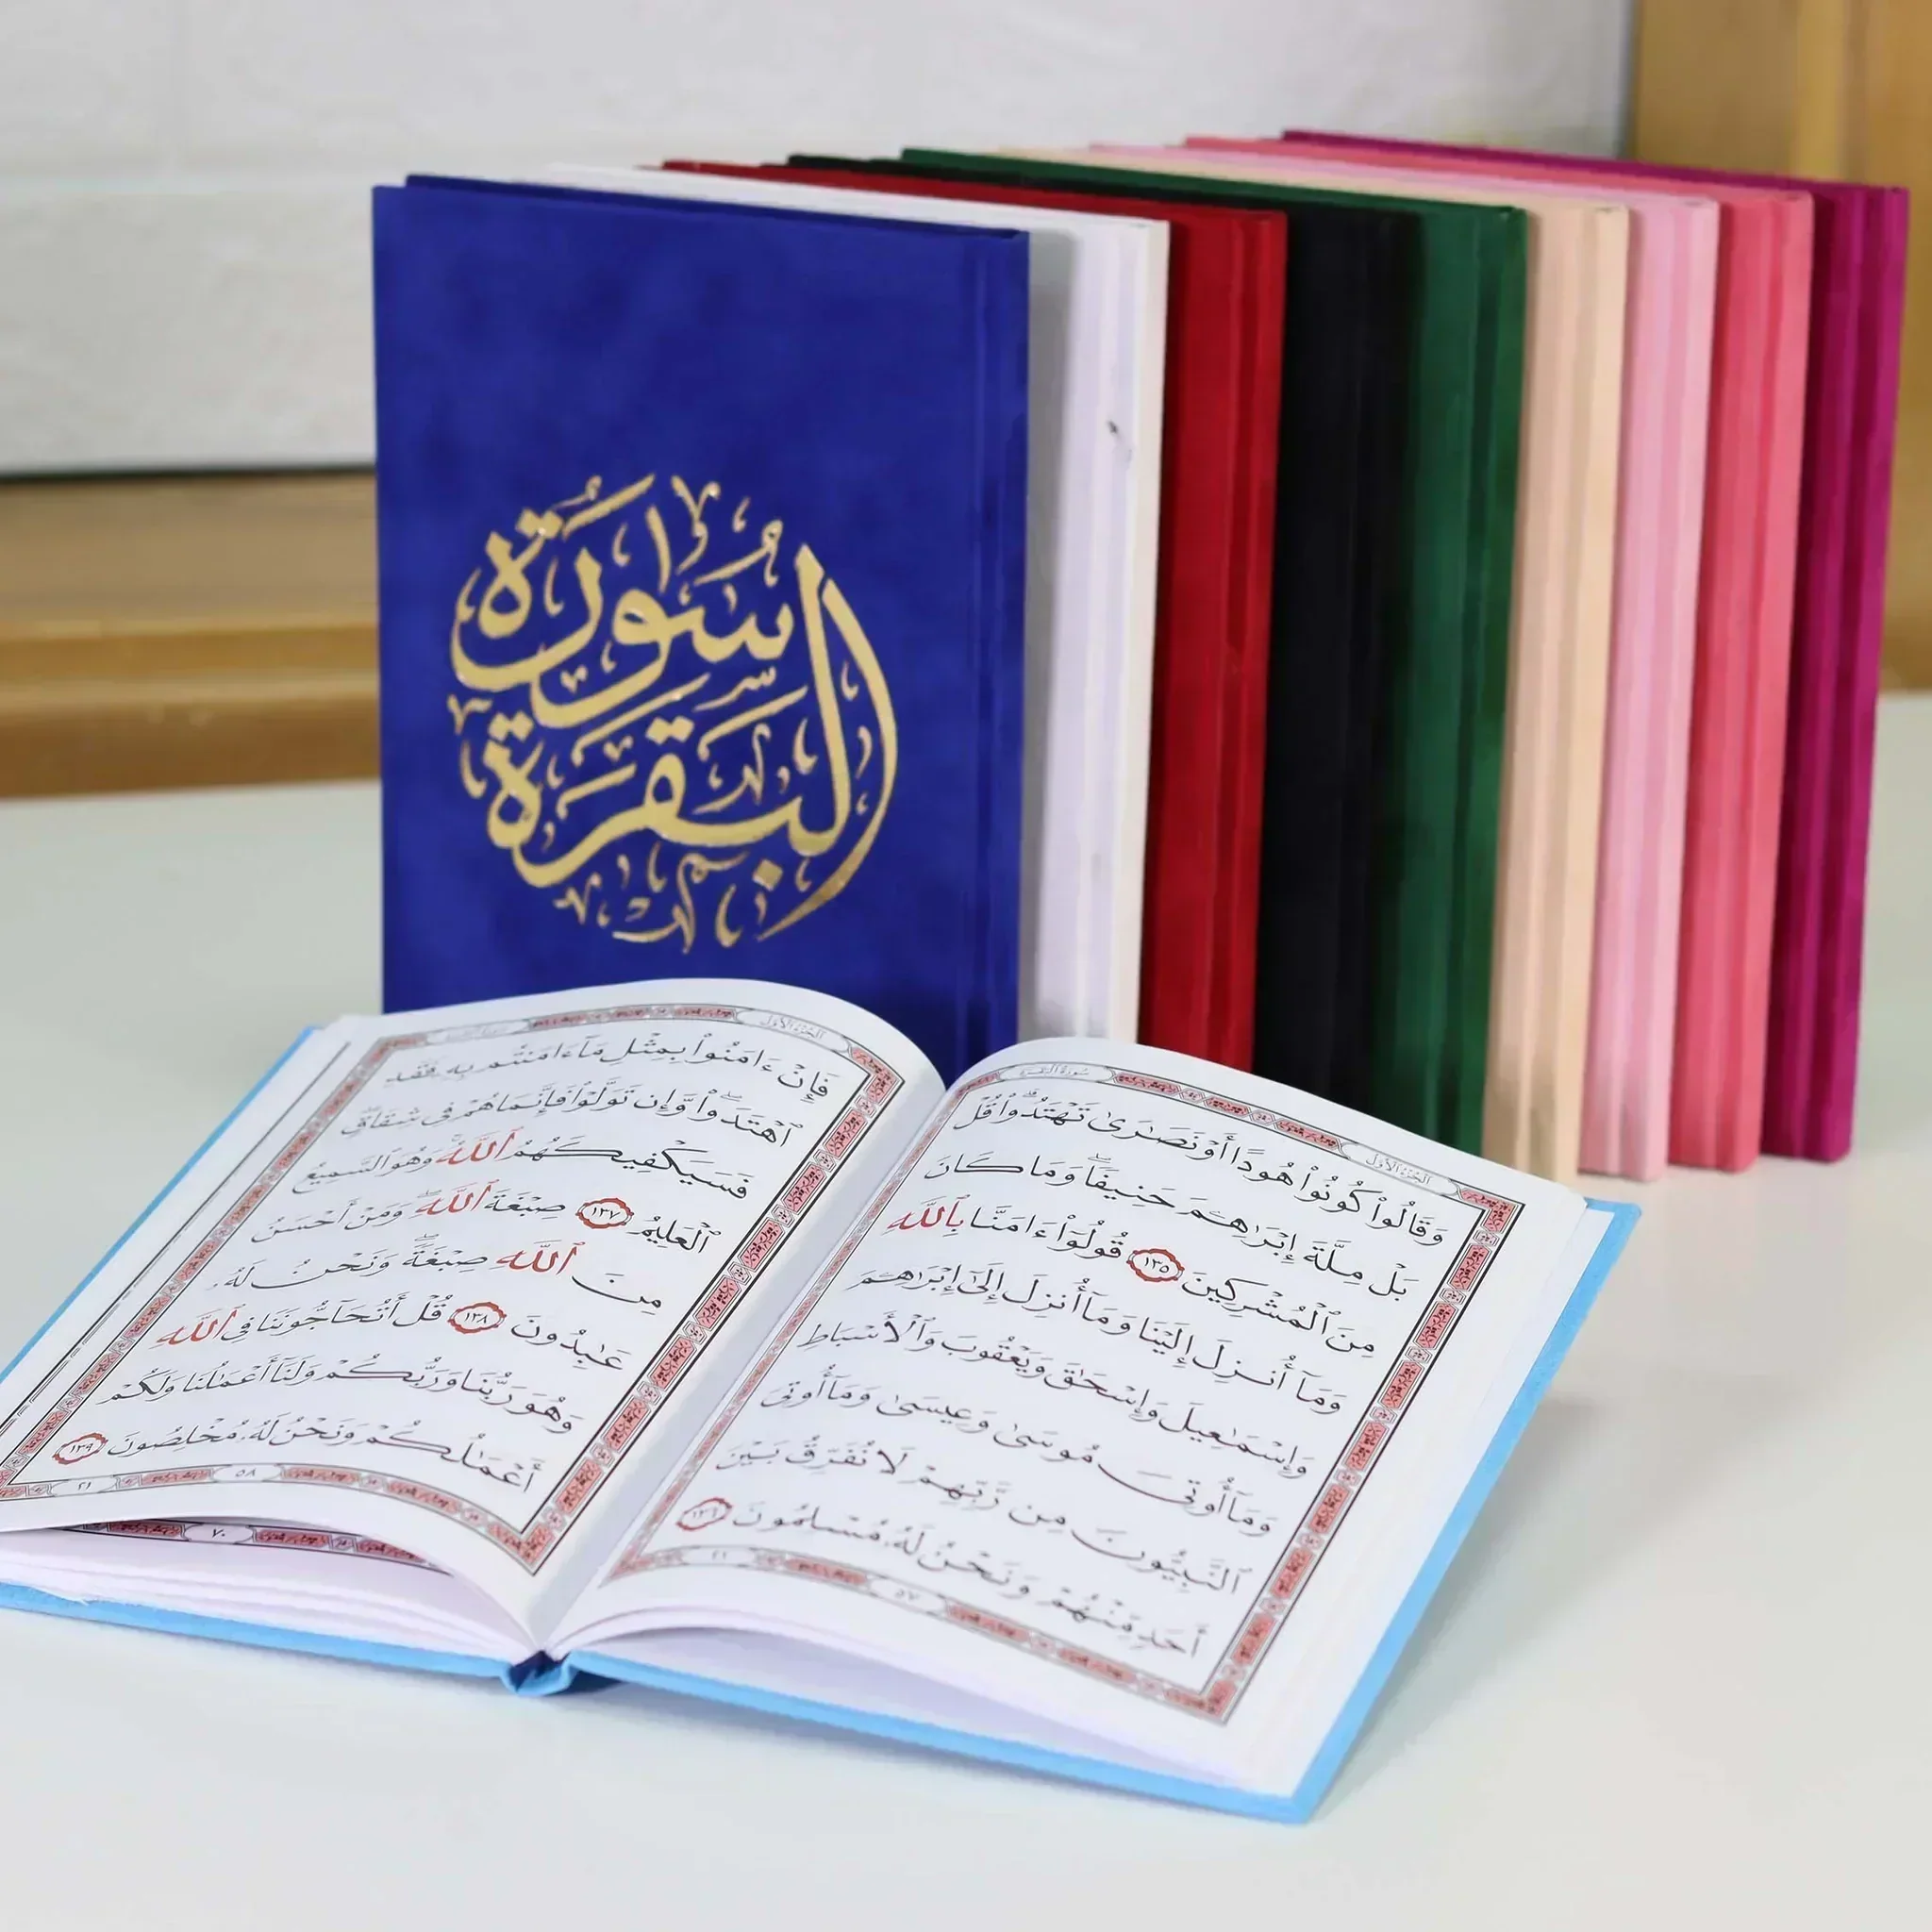 سُورَةُ
البَقَرَةِ
سورة البقرة
الجزء الأول
وَقَالُوا۟ كُونُوا۟ هُودًا أَوْ نَصَـٰرَىٰ تَهْتَدُوا۟ۗ قُلْ
بَلْ مِلَّةَ إِبْرَٰهِـۧمَ حَنِيفًاۖ وَمَا كَانَ
مِنَ ٱلْمُشْرِكِينَ ١٣٥ قُولُوٓا۟ ءَامَنَّا بِٱللَّهِ
وَمَآ أُنزِلَ إِلَيْنَا وَمَآ أُنزِلَ إِلَىٰٓ إِبْرَٰهِـۧمَ
وَإِسْمَـٰعِيلَ وَإِسْحَـٰقَ وَيَعْقُوبَ وَٱلْأَسْبَاطِ
وَمَآ أُوتِىَ مُوسَىٰ وَعِيسَىٰ وَمَآ أُوتِىَ
ٱلنَّبِيُّونَ مِن رَّبِّهِمْ لَا نُفَرِّقُ بَيْنَ
أَحَدٍ مِّنْهُمْ وَنَحْنُ لَهُۥ مُسْلِمُونَ ١٣٦
٥٧
الجزء الأول
فَإِنْ ءَامَنُوا۟ بِمِثْلِ مَآ ءَامَنتُم بِهِۦ فَقَدِ
ٱهْتَدَوا۟ۖ وَّإِن تَوَلَّوْا۟ فَإِنَّمَا هُمْ فِى شِقَاقٍۖ
فَسَيَكْفِيكَهُمُ ٱللَّهُۚ وَهُوَ ٱلسَّمِيعُ
ٱلْعَلِيمُ ١٣٧ صِبْغَةَ ٱللَّهِۖ وَمَنْ أَحْسَنُ
مِنَ ٱللَّهِ صِبْغَةًۖ وَنَحْنُ لَهُۥ
عَـٰبِدُونَ ١٣٨ قُلْ أَتُحَآجُّونَنَا فِى ٱللَّهِ
وَهُوَ رَبُّنَا وَرَبُّكُمْ وَلَنَآ أَعْمَـٰلُنَا وَلَكُمْ
أَعْمَـٰلُكُمْ وَنَحْنُ لَهُۥ مُخْلِصُونَ ١٣٩
٥٨
٢١
٧٠